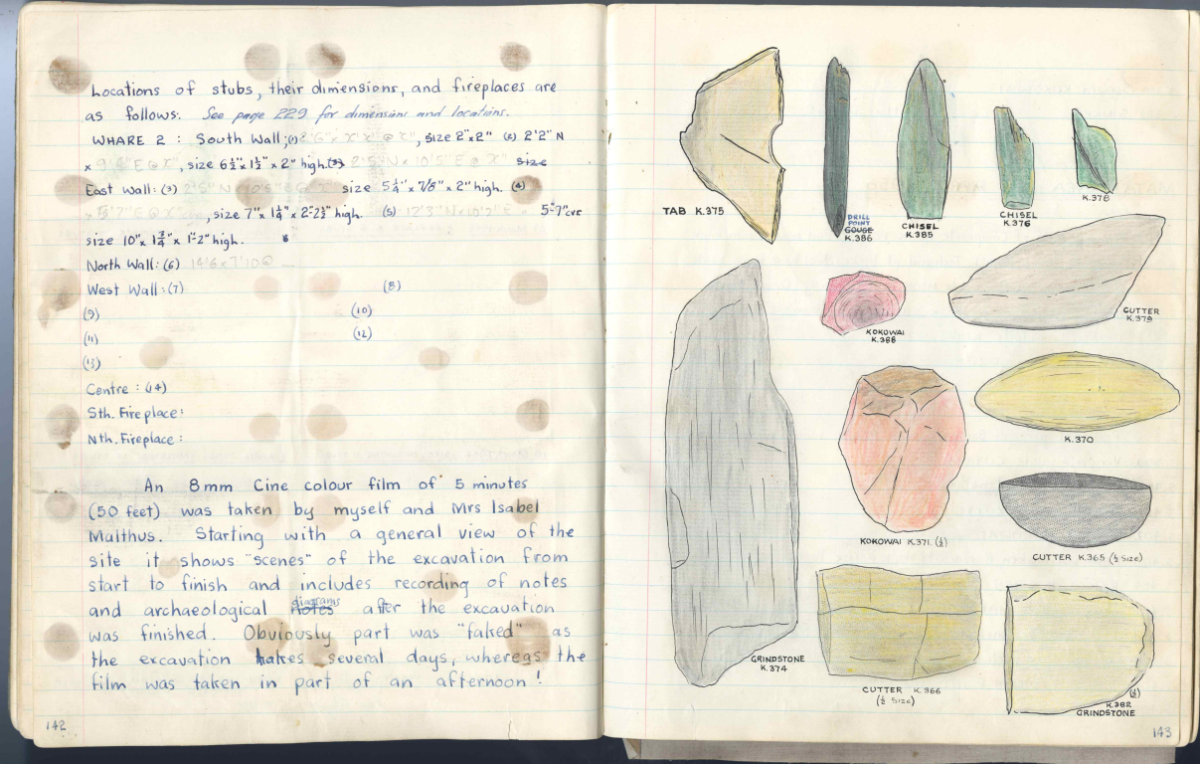 Locations of stubs, their dimensions, and fireplaces are
as follows: See page 229 for dimensions and locations.
WHARE 2 : South Wall; (1) , size 2"x2" (2) 2'2" N
x 9'6" E @ X", size 6½"x 1½" x 2" high. (3) 2'5" N x 10'5" E @ X" size
East Wall: (3) size 5¼" x 7/8" x 2" high. (4)
x , size 7" x 1¼" x 2"-2½" high. (5) 12'3" N x 10'2" E x 5"-7"
size 10" x x 1"-2" high.
North Wall: (6) 14'6 x 7'10 @
West Wall: (7) (8)
(9) (10)
(11) (12)
(13)
Centre : (14)
Sth. Fireplace:
Nth. Fireplace:
An 8mm Cine colour film of 5 minutes
(50 feet) was taken by myself and Mrs Isabel
Malthus. Starting with a general view of the
site it shows "scenes" of the excavation from
start to finish and includes recording of notes
and archaeological notes diagrams after the excavation
was finished. Obviously part was "faked" as
the excavation takes several days, whereas the
film was taken in part of an afternoon!
142
TAB K.375
DRILL POINT
GOUGE
K.386
CHISEL
K.385
CHISEL
K.376
K.378
KOKOWAI
K.388
CUTTER
K.379
K.370
KOKOWAI K.371. (½)
CUTTER K.365 (½ SIZE)
GRINDSTONE
K.374
CUTTER K.366
(½ SIZE)
(½)
K.382
GRINDSTONE
143